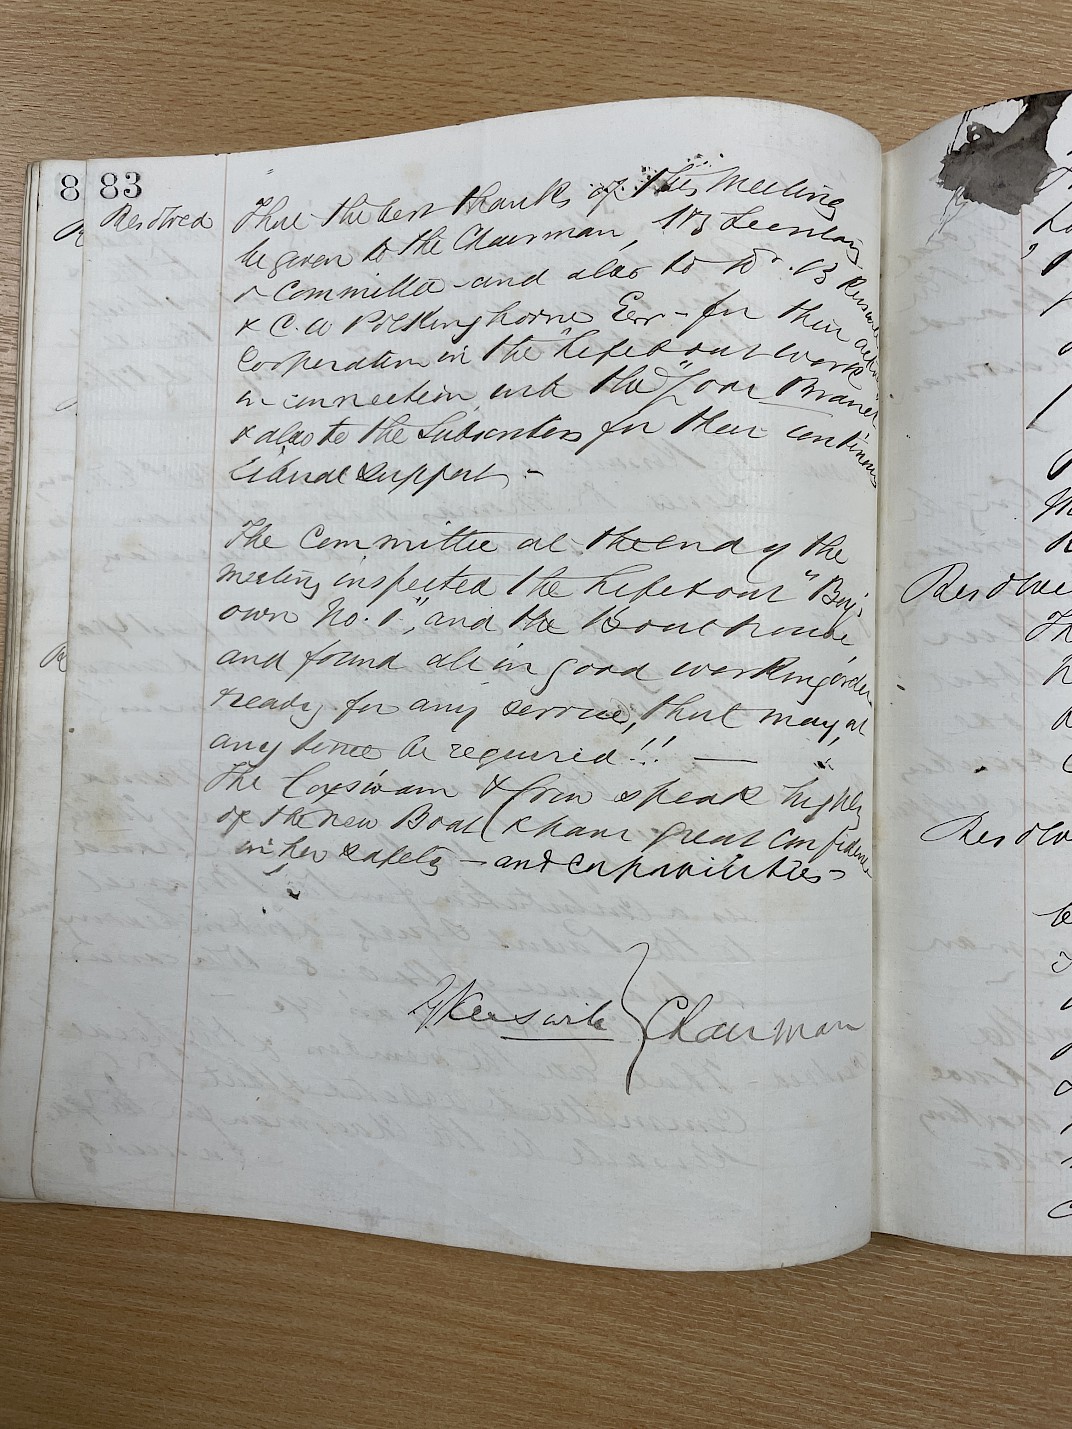 83
8
Resolved
That the best thanks of this Meeting
be given to the Chairman, Secretary
& Committee - and also to Dr. B
& C. A Polkinghorne Esqr - for their
Cooperation in the "Lifeboat work
in connection with the " Looe Branch
& also to the Subscribers for their continuous
liberal support. -
The Committee at the end of the
meeting inspected the Lifeboat "Boy's
own No. 1", and the Boathouse,
and found all in good working order
& ready for any service, that may, at
any time be required!! —
The Coxswain & Crew speak highly
of the new Boat & have great confidence
in her safety - and capabilities -
Chairman
Resolve
Resolve